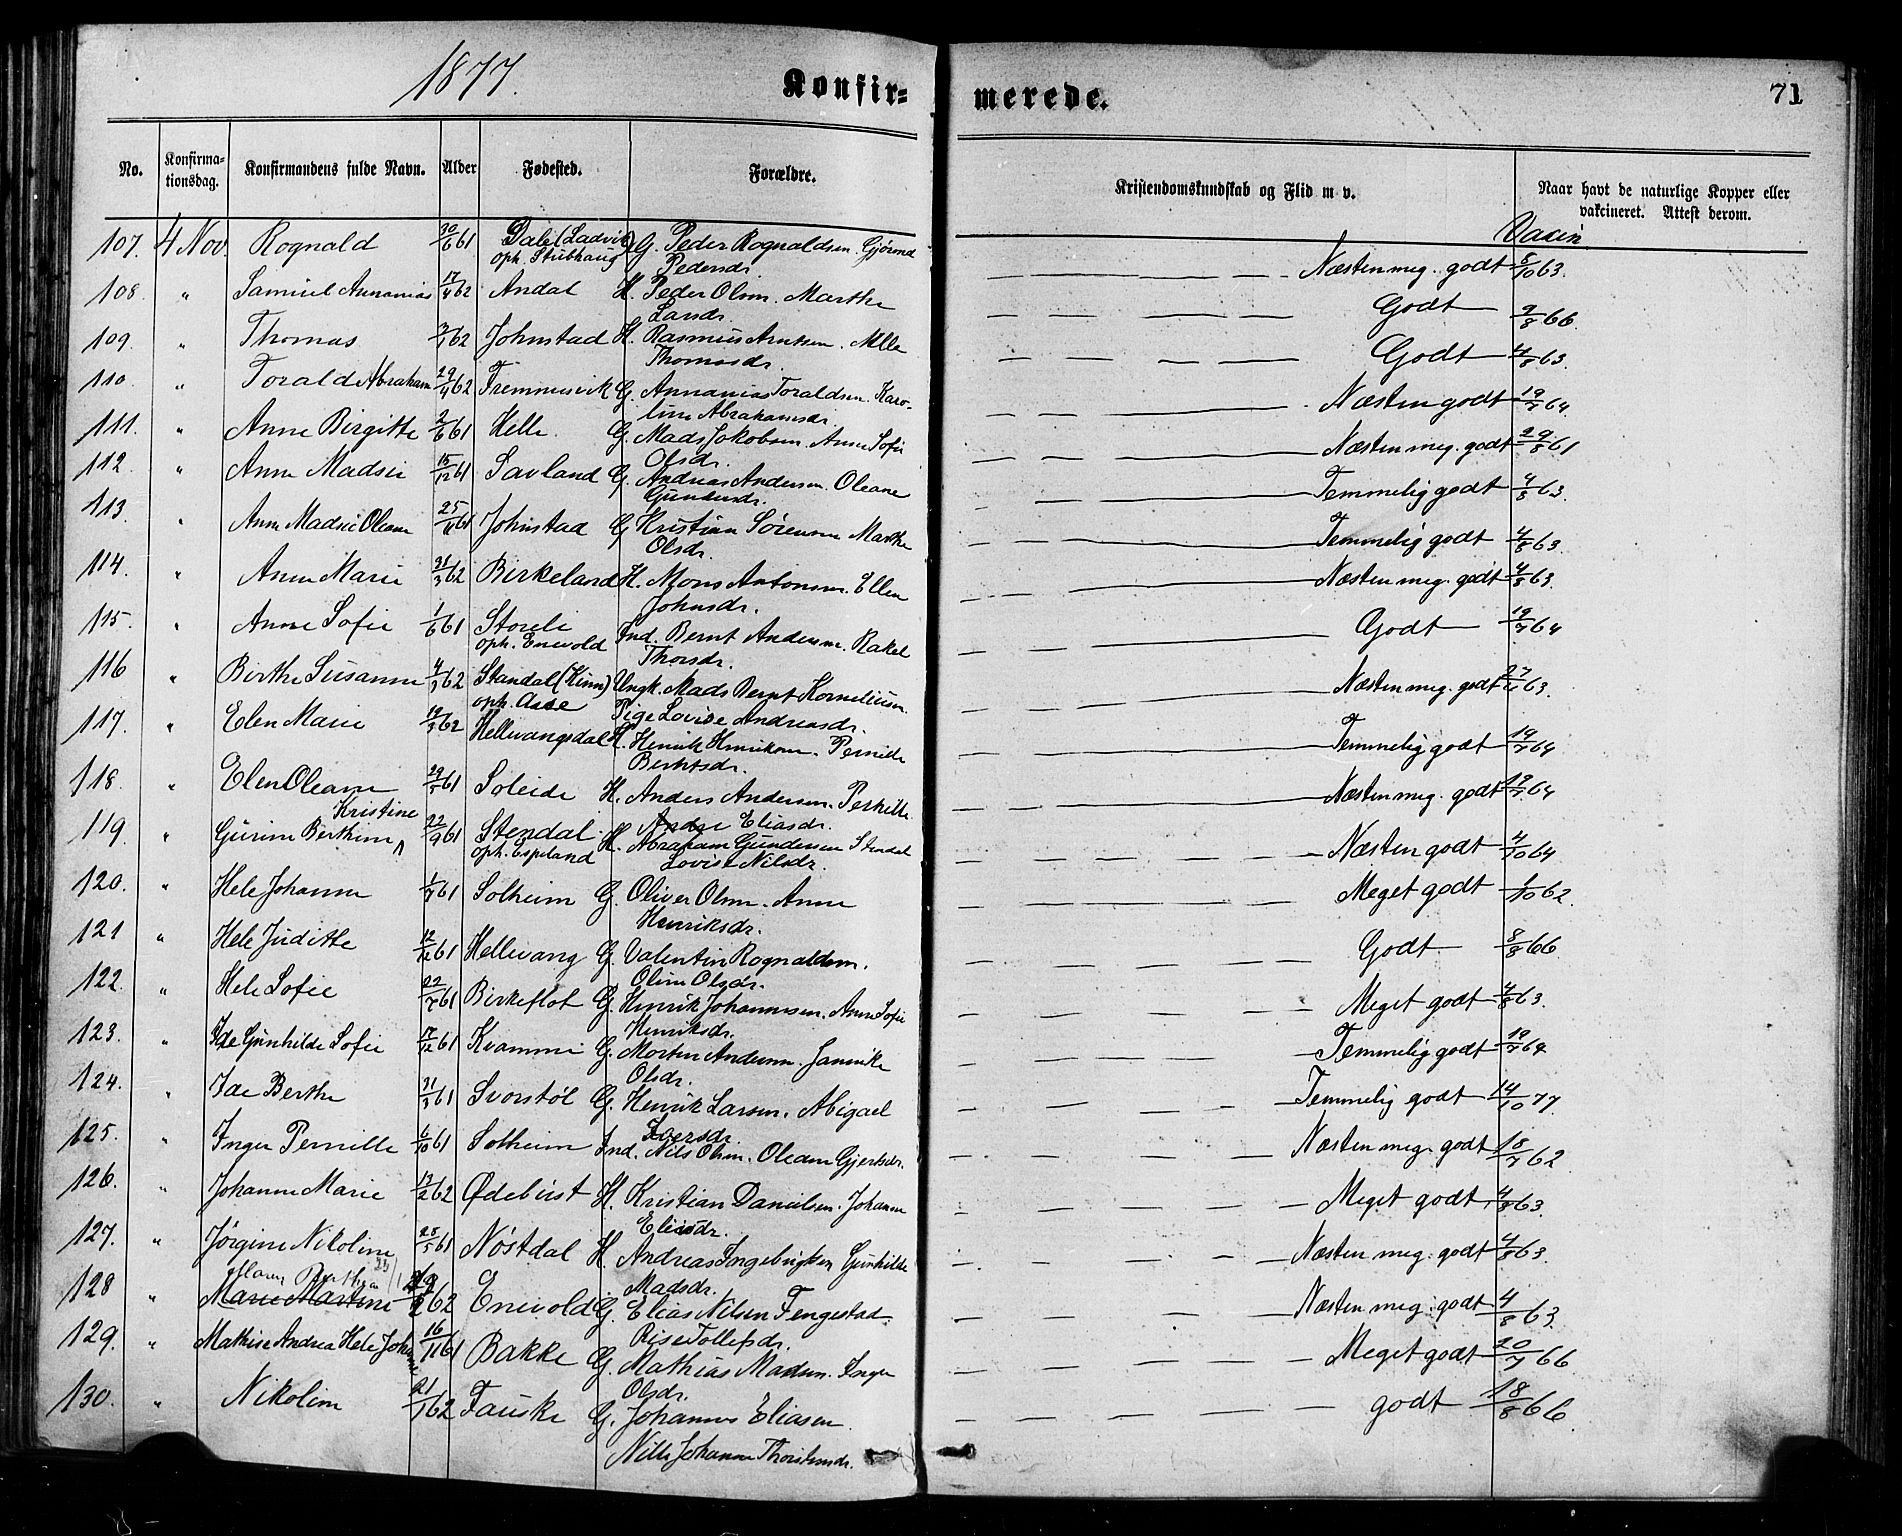 1877.
Konfir=
merede.
71
No.
Konfirma-
tionsdag.
Konfirmandens fulde Navn.
Alder
Fødested.
Forældre.
Kristendomskundskab og Flid m v.
Naar havt de naturlige Kopper eller
vakcineret. Attest derom.
Vaccin.
107. 4 Nov. Rognald 30/6 61 Dale (Ladvik) G. Peder Rognaldsen. Gjørond Næsten meg. godt 5/10 63.
oph. Stubhaug Pedersdr.
108. " Samuel Annanias 17/4 62 Andal H. Peder Olsen. Marthe Godt 9/8 66.
Larsdr.
109. " Thomas 62 Johnstad H. Rasmus Arntsen. Godt 4/8 63.
Thomasdr.
110. " Torald Abraham 29/4 62 Fremmesvik G. Annanias Toraldsen. Karo- Næsten godt 19/7 64.
line Abrahamsdr.
111. " Anne Birgitte 2/6 61 Helle. G. Mads Jakobsen. Anne Sofie Næsten meg. godt 29/8 61
Olsdr.
112. " Anne Madsie 15/12 61 Savland G. Andreas Andersen. Oleane Temmelig godt 4/8 63.
Gundersdr.
113. " Anne Madsie Oleane 25/11 61 Johnstad G. Kristian Sørensen Marthe Temmelig godt 4/8 63.
Olsdr.
114. " Anne Marie 31/3 62 Birkeland H. Mons Antonsen. Ellen Næsten meg. godt 4/8 63.
Johnsdr.
115. " Anne Sofie 1/6 61 Storeli Ind. Bernt Andersen. Rakel Godt 19/7 64
oph. Enevold Thorsdr.
116 " Birthe Susanne 4/3 62 Standal (Kinn) Ungk. Mads Bernt Korneliusen. Næsten meg. godt 63.
oph. Aase Pige Lovise Andreasdr.
117. " Elen Marie 19/3 62 Hellevangsdal H. Henrik Henriksen. Pernille Temmelig godt 19/7 64
Berntsdr.
118. " Elen Oleane 61 Soleide H. Anders Andersen. Pernille Næsten meg. godt 19/7 64
Kristine Eliasdr.
119. " Gurine Berthine 22/9 61 Stendal. H. Abraham Gundersen Stendal Næsten godt 4/10 64
oph. Espeland Lovise Nilsdr.
120. " Hele Johanne 1/7 61 Solheim G. Oliver Olsen. Anne Meget godt 1/10 62.
Henriksdr.
121 " Hele Juditte 12/12 61 Hellevang G. Valentin Rognaldsen. Godt 8/8 66
Oline Olsdr.
122. " Hele Sofie 22/7 61 Birkeflot G. Henrik Johannesen. Anne Sofie Meget godt 4/8 63.
Henriksdr.
123. " Ide Gunhilde Sofie 17/12 61 Kvamme G. Morten Andersen. Jannike Temmelig godt 19/7 64
Olsdr.
124. " Ide Berthe 31/3 61 Svorstøl G. Henrik Larsen. Abigael Temmelig godt 14/10 77
Iversdr.
125. " Inger Pernille 6/10 61 Solheim Ind. Nils Olsen. Oleane Gjertsdr. Næsten meg. godt 18/7 62
126. " Johanne Marie 13/2 62 Ødebust H. Kristian Danielsen. Johanne Meget godt 4/8 63.
Eliasdr.
127. " Jørgine Nikoline 25/5 61 Nøstdal H. Andreas Ingebrigtsen Gunhilde Næsten meg. godt 4/8 63.
Maren Berthea Madsdr.
128 " Marie Martine 62 Enevold G. Elias Nilsen Fengestad Næsten meg. godt 4/8 63.
Rise Tollefsdr.
129. " Mathise Andrea Hele Johanne 16/11 61 Bakke G. Mathias Madsen. Inger Meget godt 20/7 66
Olsdr.
130. " Nikoline 21/1 62 Fauske G. Johannes Eliasen godt 18/8 66.
Nille Johanne Thorstensdr.